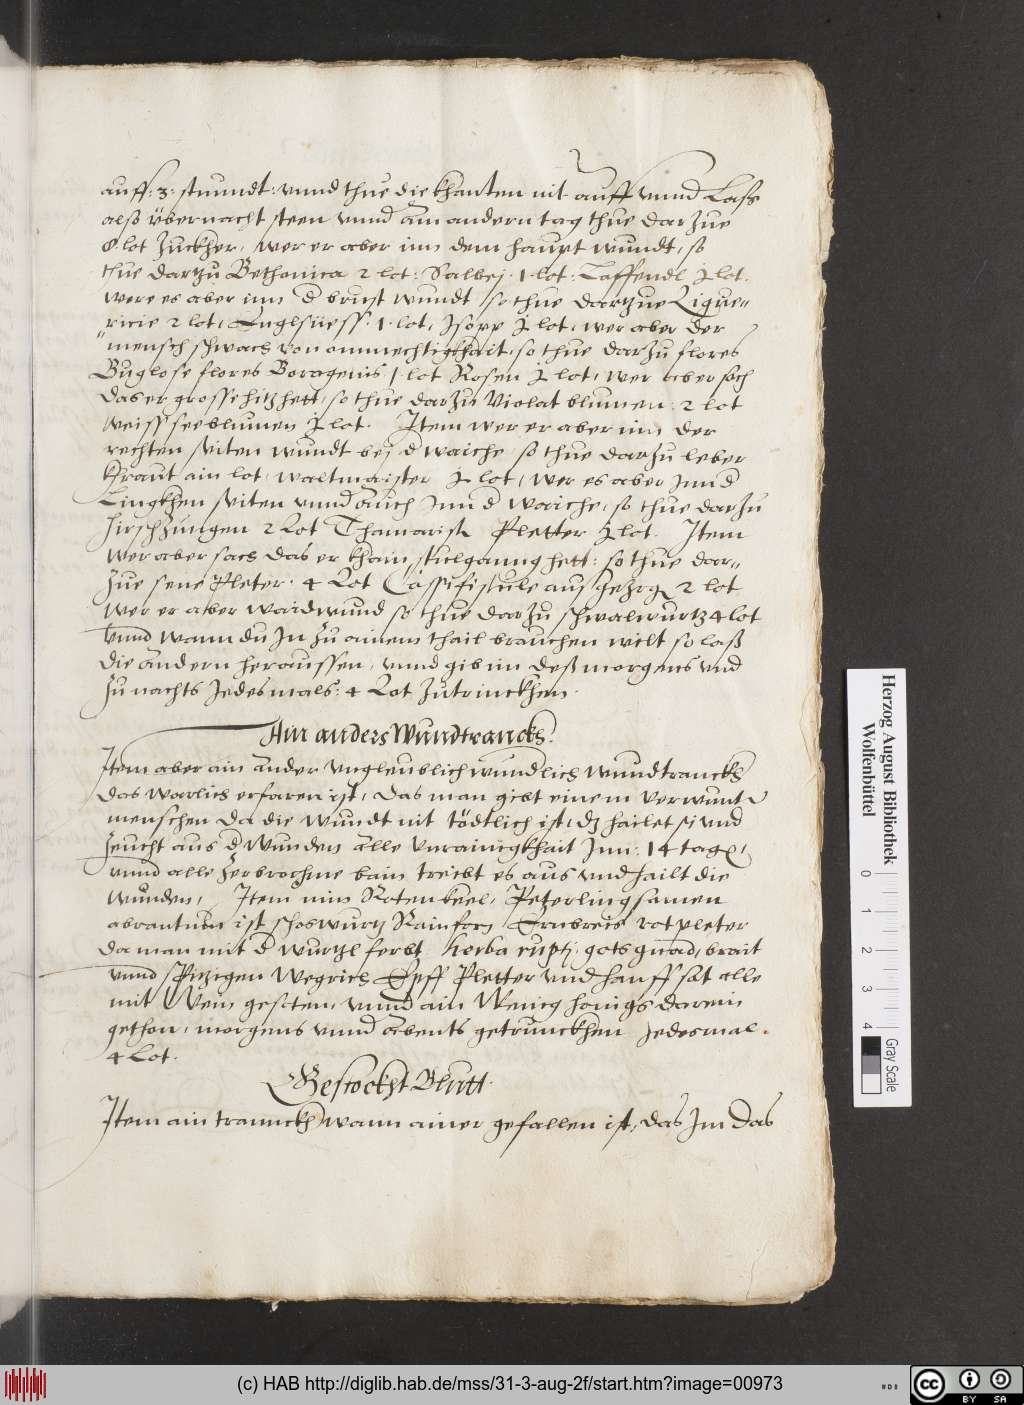 auff: 3: stuundt: vnnd thue die khanten nit auff vnnd Lass
also v̈bernacht steen vnnd am andern tag thue dar zue
8 lot Zuckher, wer er aber inn dem haupt wundt, so
thue dartzu Bethonica 2 lot: Salbej. 1. lot: Laffendl j lot.
were es aber inn d brust wundt so thue dartzue Lique„
ricie 2 lot, Englsüess. 1. lot, Jsopp j lot, wer aber der
mensch schwach von onmechtigkhait, so thue darzu flores
Buglose flores Boragenis 1 lot Rosen j lot, wer aber sach
das er grosse hitz hett, so thue dar zu Violat blumen: 2 lot
weiss seeblumen j lot. Jtem wer er aber inn der
rechten seiten wundt bej d waiche so thue dar zu leber
khraut ain lot, waltmaister j lot, wer es aber Jnn d
Lingkhen seiten vnnd auch Jnn d waiche, so thue dar zu
hirschzungen 2 Lot Thamarisk Pletter j lot. Jtem
wer aber sach das er khain stuelganng hett: so thue dar„
zue sene Pleter. 4 Lot Cassifistule aus gezog 2 lot
wer er aber waidwund so thue dar zu schwalwurtz 4 lot
vnnd wann du Jn zu ainem thail brauchen wilt so laß
die andern heraussen, vnnd gib im deß morgens vnd
zu nachts Jedesmals: 4 Lot zutrinckhen.
Ain anders Wundtranckh.
Jtem aber ain ander vngleublich wundlich wundtranckh
das warlich erfaren ist, das man gibt einem verwunt
menschen da die wundt nit tödtlich ist, dz hailet si vnd
zeucht aus d wunden alle vnrainigkhait Jnn: 14 tagen,
vnnd alle zerbrochne bain treibt es aus vnd hailt die
wunden, Jtem nim Roten keel, Peterlingsamen
abrantum ist schoswurtz Rainfarn Ernbreis rotpleter
da man mit d wurtzl ferbt herba ruptj, gots gnad, brait
vnnd spitzigen wegrich Epff Pletter vnd hanff sat alle
mit Wein gesoten, vnnd ain Wenig honigs darein
gethon, morgens vnnd abents getrunckhen Jedesmal.
4 Lot.
Gestockht Blutt.
Jtem ain tranckh wann ainer gefallen ist, das Jm das
Herzog August Bibliothek
Wolfenbüttel
0 1 2 3 4
Gray Scale
(c) HAB http://diglib.hab.de/mss/31-3-aug-2f/start.htm?image=00973
cc BY SA